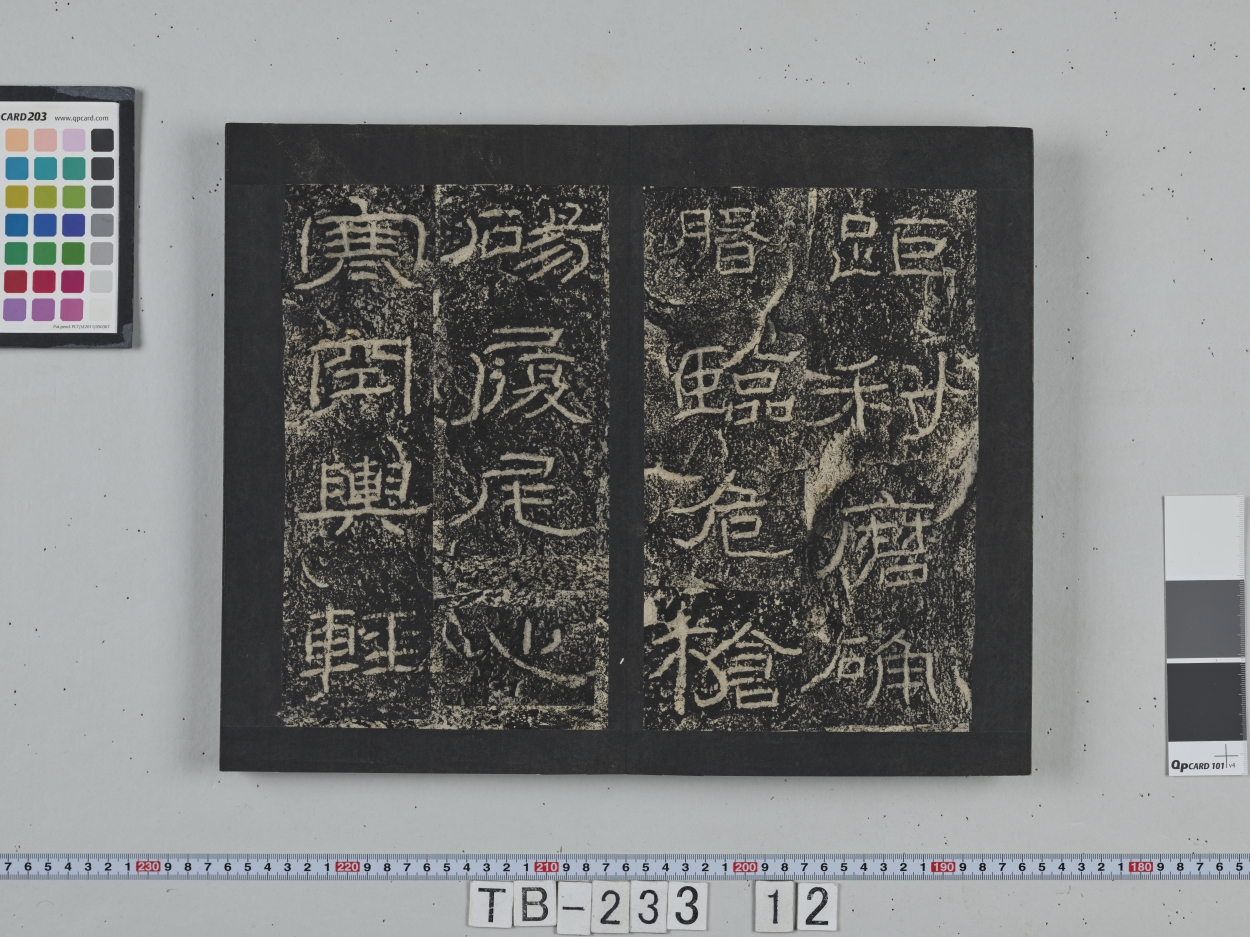 距利磨确
磐臨危槍
碭履尾心
寒空輿輕
CARD 203 www.qpcard.com
QP CARD 101 v4
7 6 5 4 3 2 1 230 9 8 7 6 5 4 3 2 1 220 9 8 7 6 5 4 3 2 1 210 9 8 7 6 5 4 3 2 1 200 9 8 7 6 5 4 3 2 1 190 9 8 7 6 5 4 3 2 1 180 9 8 7 6 5
TB-233 12